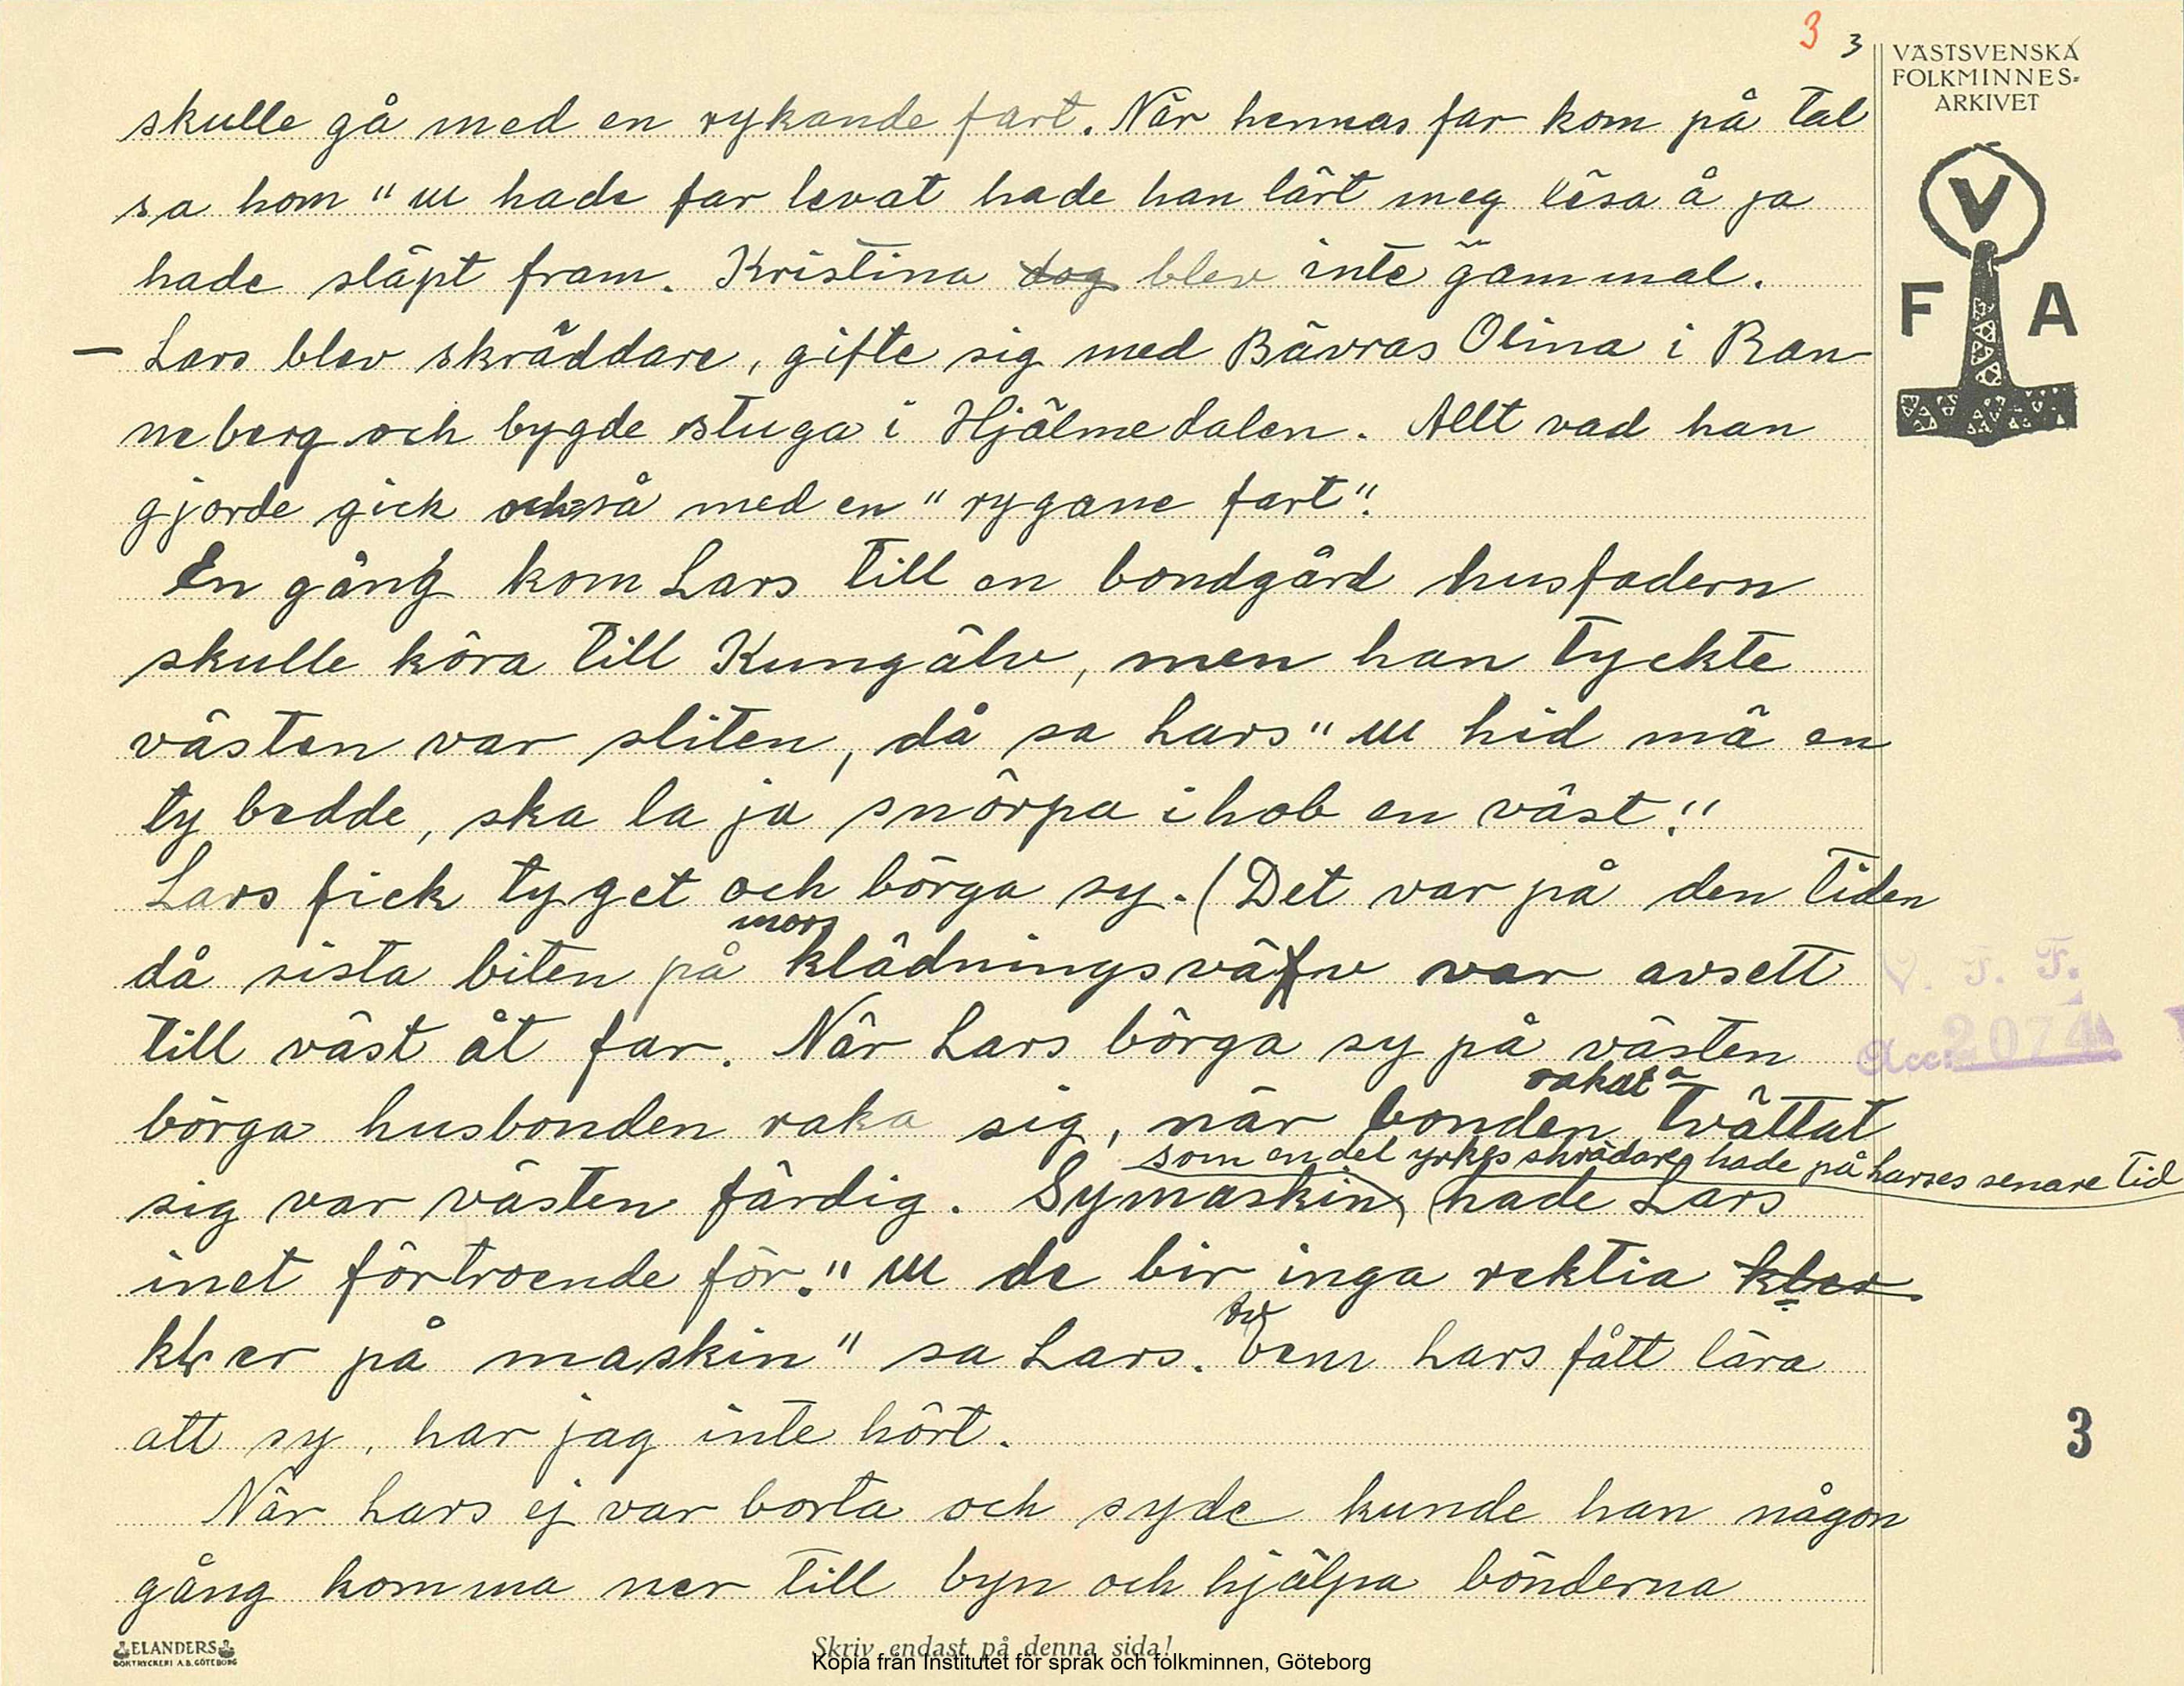 3 3
VÄSTSVENSKA
FOLKMINNES-
ARKIVET
V
F A
skulle gå med en rykande fart. När hennas far kom på tal
sa hon " u hade far levat hade han lärt meg läsa å ja
hade släpt fram. Kristina dog blev inte gammal.
— Lars blev skräddare, gifte sig med Bävras Olina i Ran-
neberg och bygde stuga i Hjälmedalen. Allt vad han
gjorde gick också med en " rygane fart".
En gång kom Lars till en bondgård husfadern
skulle köra till Kungälv, men han tyckte
västen var sliten, då sa Lars " u hid mä en
ty bedde, ska la ja snörpa ihob en väst!"
Lars fick tyget och börga sy. (Det var på den tiden
mors
då sista biten på klädningsväfv var avsett
till väst åt far. När Lars börga sy på västen
rakat å
börga husbonden raka sig, när bonden tvättat
som en del yrkesskrädare hade på Larses senare tid
sig var västen färdig. Symaskin hade Lars
inet förtroende för." u de bir inga rektia kler
kler på maskin" sa Lars. Av vem Lars fått lära
att sy, har jag inte hört.
När Lars ej var borta och syde kunde han någon
gång komma ner till byn och hjälpa bönderna
V. F. F.
Acc. 2074
3
ELANDERS
BOKTRYCKERI A.B. GÖTEBORG
Skriv endast på denna sida!
Kopia från Institutet för språk och folkminnen, Göteborg